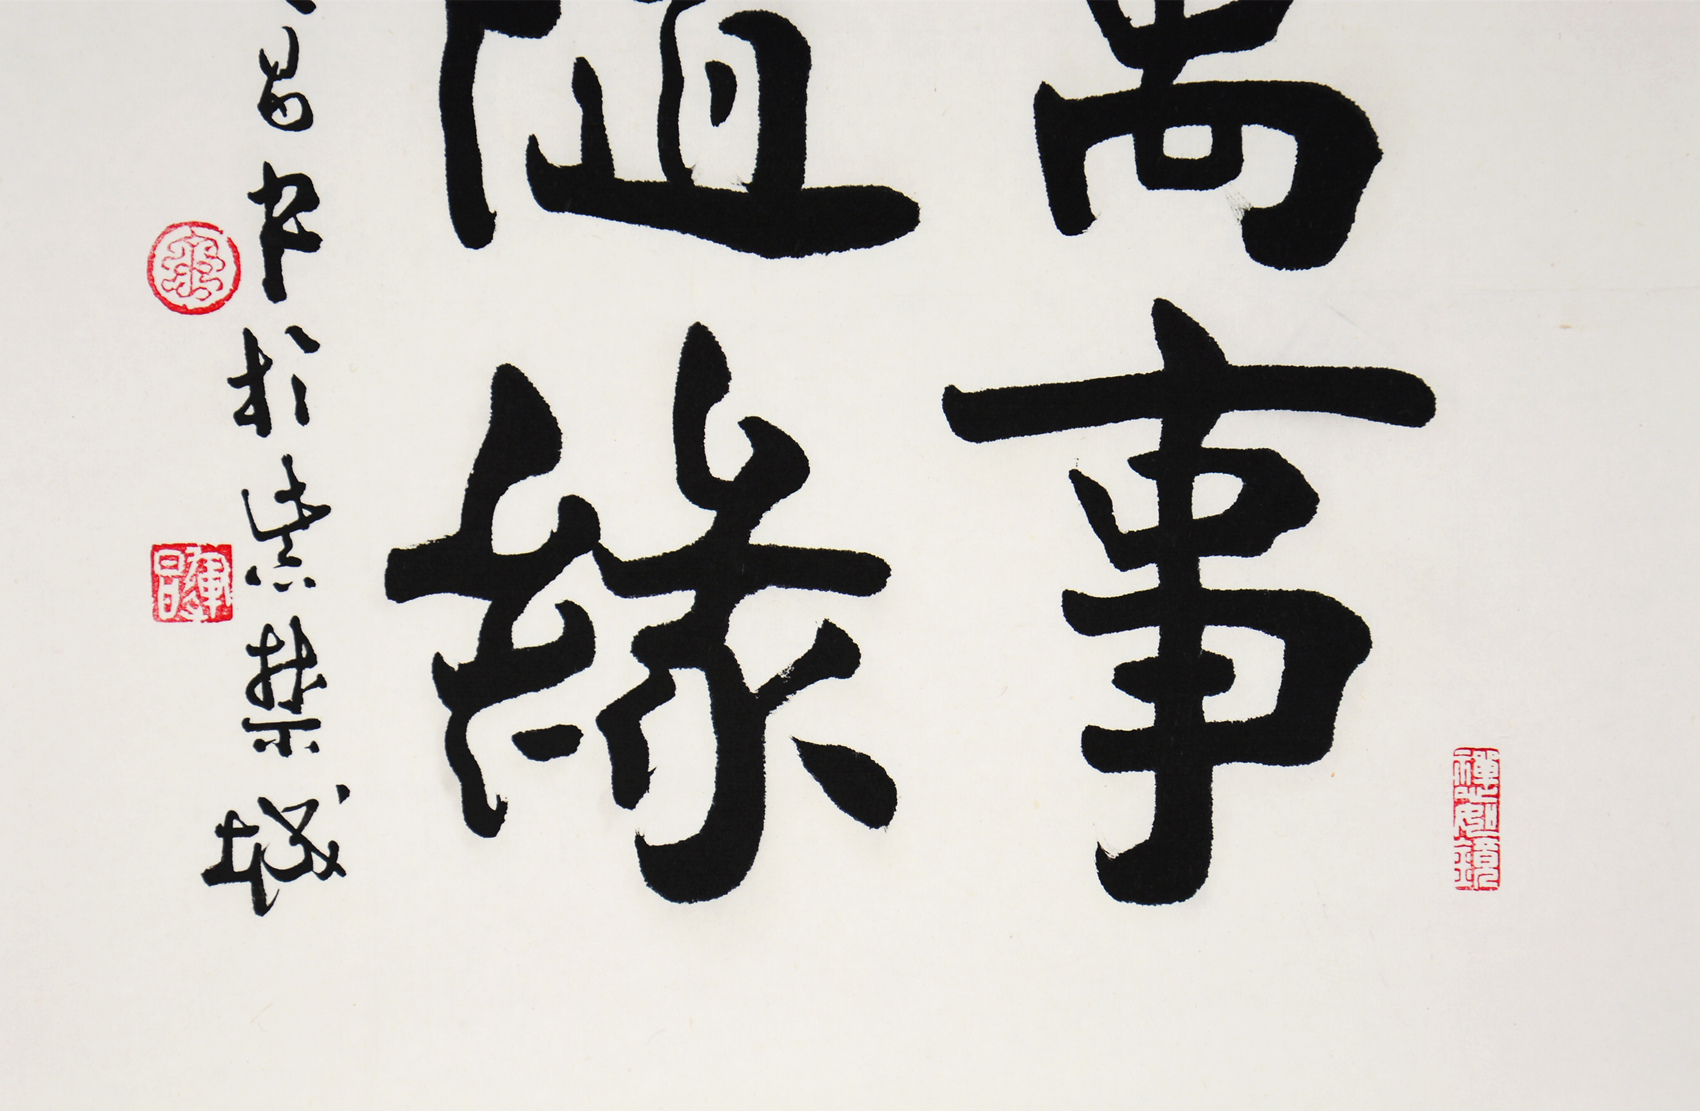 萬事
隨緣
昌書於紫禁城